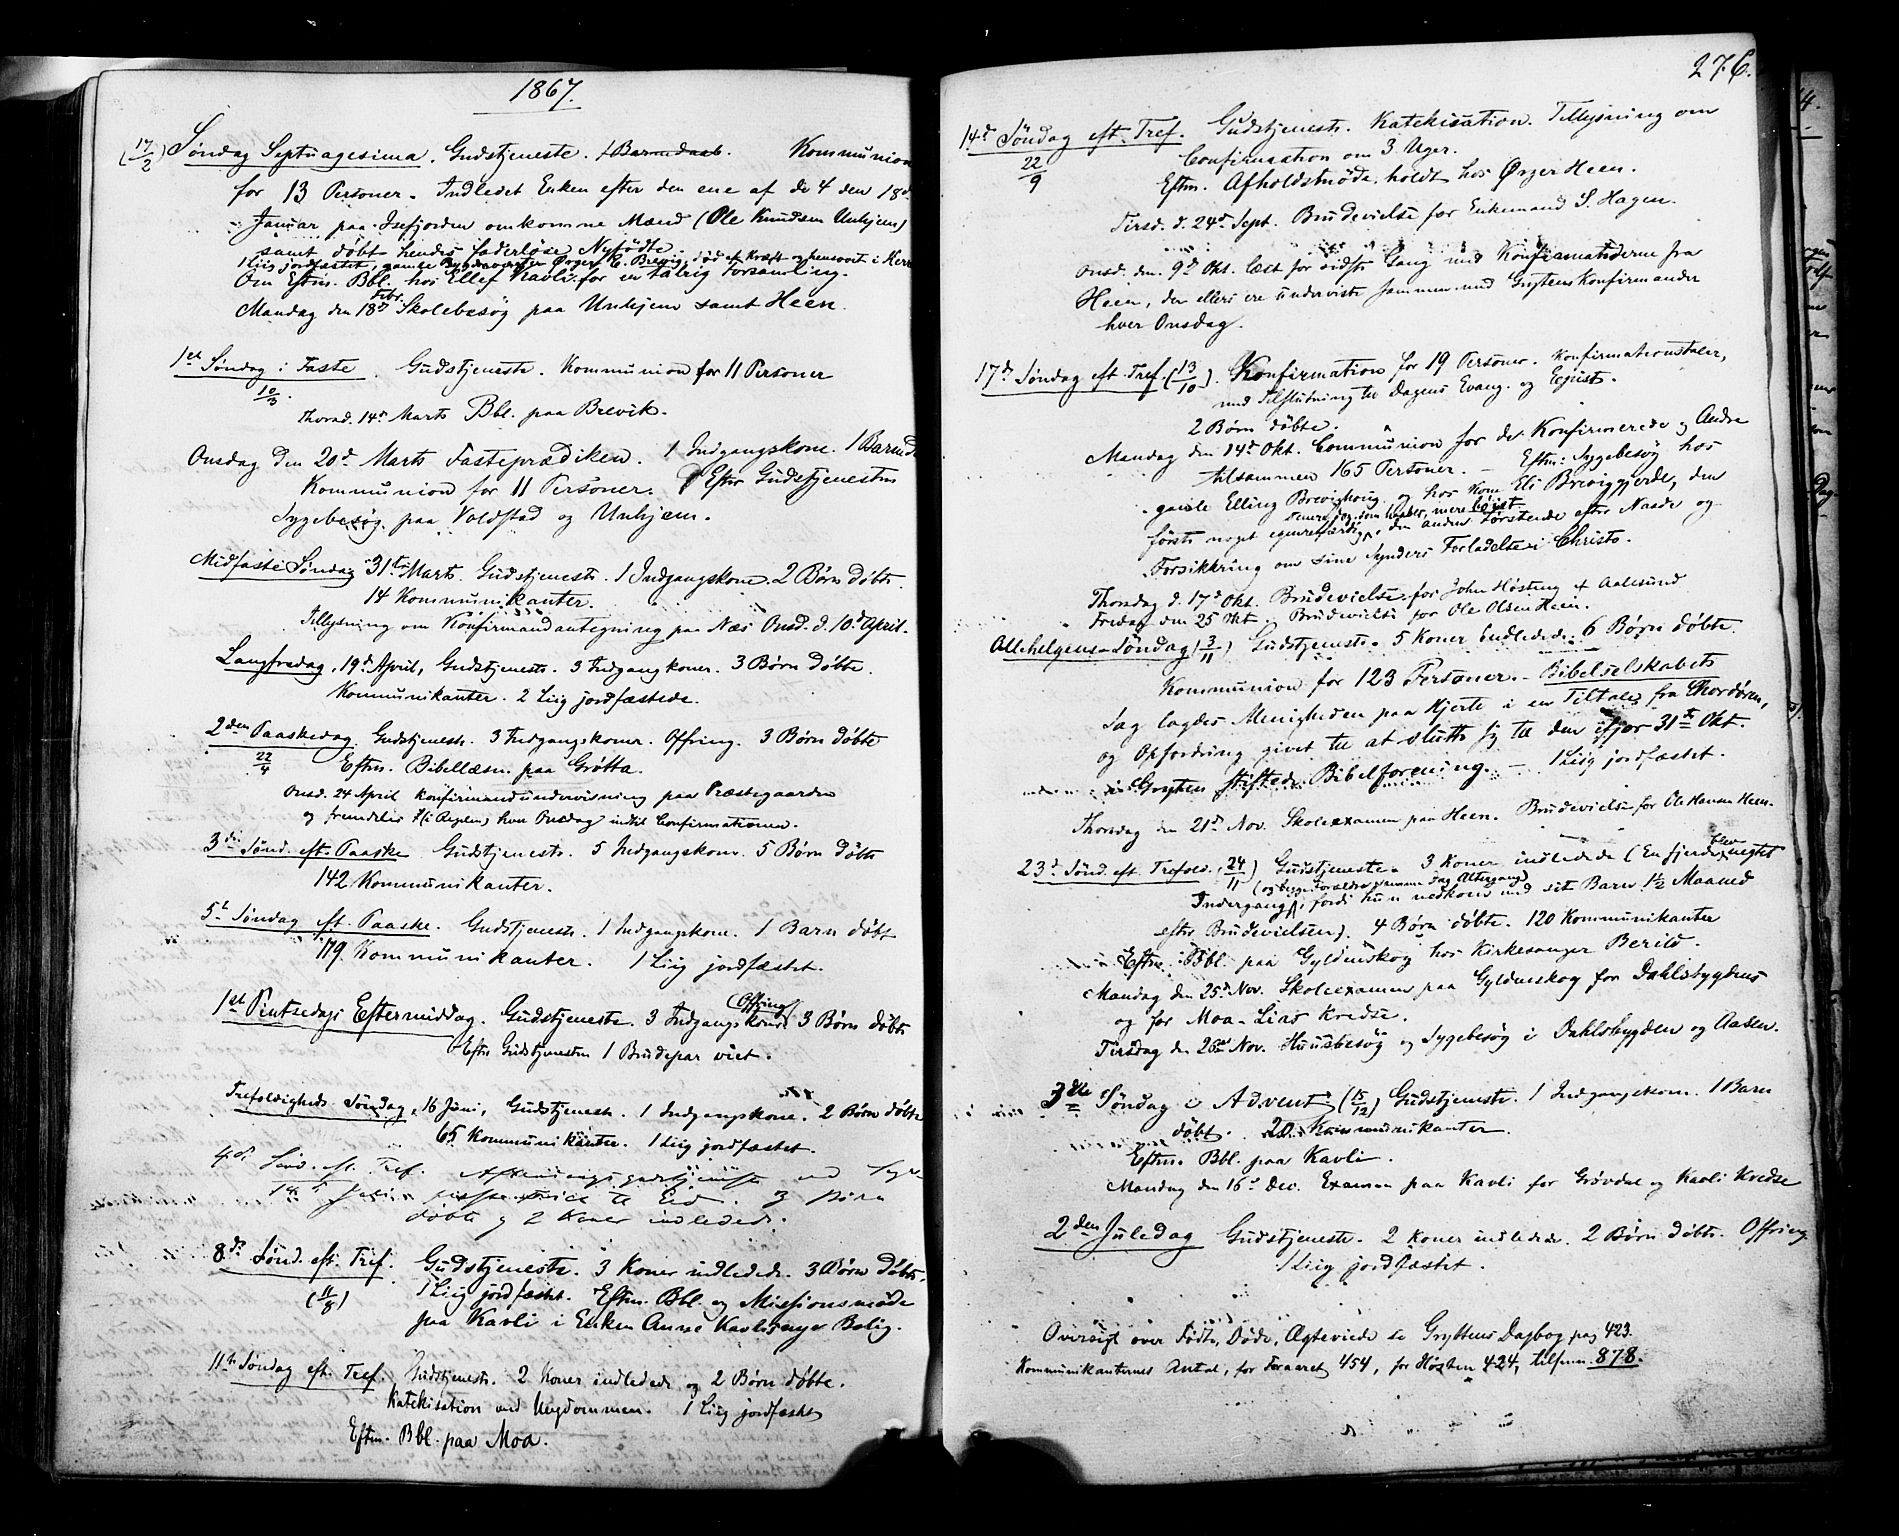 1867.
(17/2) Søndag Septuagesima. Gudstjeneste. 1 Barnedaab. Kommunion
for 13 Personer. Indledet Enken efter den ene af de 4 den 18d
Januar paa Isefjorden omkomne Mænd (Ole Knudsen Unhjem)
samt døbt hendes faderløse Nyfødte.
1 Liig jordfæstet, gamle Ørger E. Brevig, død af Kræft og hensovet i Herr
Om Eftm. Bbl. hos Ellef Kavli for en talrig Forsamling.
Mandag den 18d Febr. Skolebesøg paa Unhjem samt Heen.
1st Søndag i Faste. Gudstjeneste. Kommunion for 11 Personer
10/3.
Thorsd. 14d Marts Bbl. paa Brevik.
Onsdag den 20d Marts Fasteprædiken. 1 Indgangskone. 1 Barn d
Kommunion for 11 Personer. Efter Gudstjenesten
Sygebesøg paa Voldstad og Unhjem.
Midfaste Søndag 31te Marts. Gudstjeneste. 1 Indgangskone. 2 Børn døbte.
14 Kommunikanter.
Tillysning om Konfirmandantegning paa Næs Onsd. d. 10d April.
Langfredag, 19d April, Gudstjeneste. 3 Indgangkoner. 3 Børn døbte.
Kommunikanter. 2 Liig jordfæstede.
2den Paaskedag Gudstjeneste. 3 Indgangskoner. Offring. 3 Børn døbte
22/4 Eftm. Bibellæsn. paa Grøtta.
Onsd. 24 April Konfirmandundervisning paa Præstegaarden
og fremdeles (i Reglen) hver Onsdag indtil Confirmationen.
3die Sønd. eft. Paaske Gudstjeneste. 5 Indgangskoner. 5 Børn døbte
142 Kommunikanter.
5t Søndag eft. Paaske. Gudstjeneste. 1 Indgangskone. 1 Barn døbt
179 Kommunikanter. 1 Liig jordfæstet.
1st Pintsedags Eftermiddag. Gudstjeneste. 3 Indgangskoner (Offring) 3 Børn døbte
Efter Gudstjenesten 1 Brudepar viet.
Trefoldigheds Søndag, 16 Juni, Gudstjeneste. 1 Indgangskone. 2 Børn døbte
65 Kommunikanter. 1 Liig jordfæstet.
4de Sønd. eft. Tref.
14de Juli til Eid. 3 Børn
døbte og 2 Koner indledede.
8de Sønd. eft. Tref. Gudstjeneste. 3 Koner indledede. 3 Børn døbte.
(11/8) 1 Liig jordfæstet. Eftm. Bbl. og Missionsmøde
paa Kavli i Enken Anne Kavlis nye Bolig.
11te Søndag eft. Tref. Gudstjeneste. 2 Koner indledede og 2 Børn døbte.
Katekisation med Ungdommen. 1 Liig jordfæstet
Eftm. Bbl. paa Moa.
276.
14d Søndag eft. Tref. Gudstjeneste. Katekisation. Tillysning om
22/9 Confirmation om 3 Uger.
Eftm. Afholdsmøde holdt hos Ørger Heen.
Tirsd. d. 24d Sept. Brudevielse for Enkemand S. Hagen.
Onsd. den 9d Okt. læst for sidste Gang med Konfirmanderne fra
Heen, der ellers ere underviste sammen med Gryttens Konfirmander
hver Onsdag.
17d Søndag eft. Tref. (13/10). Konfirmation for 19 Personer. Konfirmationstaler,
med Tilslutning til Dagens Evang. og Epist.
2 Børn døbte.
Mandag den 14d Okt. Communion for de Konfirmerede og Andre
tilsammen 165 Personer. – Eftm: Sygebesøg hos
gamle Elling Brevighoug og hos Kone Eli Breviggjerde, den
første noget egenretfærdig, senere dog, som haabes, mere bøiet, den anden tørstende efter Naade og
Forsikkring om sine Synders Forladelse i Christo.
Thorsdag d. 17d Okt. Brudevielse for John Høsteng af Aalesund
Fredag den 25 Okt. Brudevielse for Ole Olsen Heen.
Allehelgens-Søndag (3/11) Gudstjeneste. 5 Koner indledede. 6 Børn døbte.
Kommunion for 123 Personer. – Bibelselskabets
Sag lagdes Menigheden paa Hjerte i en Tiltale fra Chordøren,
og Opfordring givet til at slutte sig til den ifjor 31te Okt.
i Grytten stiftede Bibelforening. – 1 Liig jordfæstet.
Thorsdag den 21d Nov. Skoleexamen paa Heen. Brudevielse for Ole Hansen Heen.
23d Sønd. eft. Trefold. (24/11) Gudstjeneste. 3 Koner indledede (En fjerde blev negtet
Indergang (og begge Forældre samme Dag Altergang), fordi hun nedkom med sit Barn 1½ Maaned
efter Brudevielsen). 4 Børn døbte. 120 Kommunikanter
Eftm. Bbl. paa Gyldenskog hos Kirkesanger Berild.
Mandag den 25d Nov. Skoleexamen paa Gyldenskog for Dahlsbygdens
og for Moa-Lias Kredse.
Tirsdag den 26d Nov. Huusbesøg og Sygebesøg i Dahlsbygden og Aasen.
3die Søndag i Advent (15/12) Gudstjeneste. 1 Indgangskone. 1 Barn
døbt. 20 Kommunikanter.
Eftm. Bbl. paa Kavli.
Mandag den 16d Dec. Examen paa Kavli for Grøvdal og Kavli Kredse
2den Juledag Gudstjeneste. 2 Koner indledede. 2 Børn døbte. Offring.
1 Liig jordfæstet.
Oversigt over Fødte, Døde, Ægteviede se Gryttens Dagbog pag 423.
Kommunikanternes Antal, for Foraaret 454, for Høsten 424, tilsmn. 878.